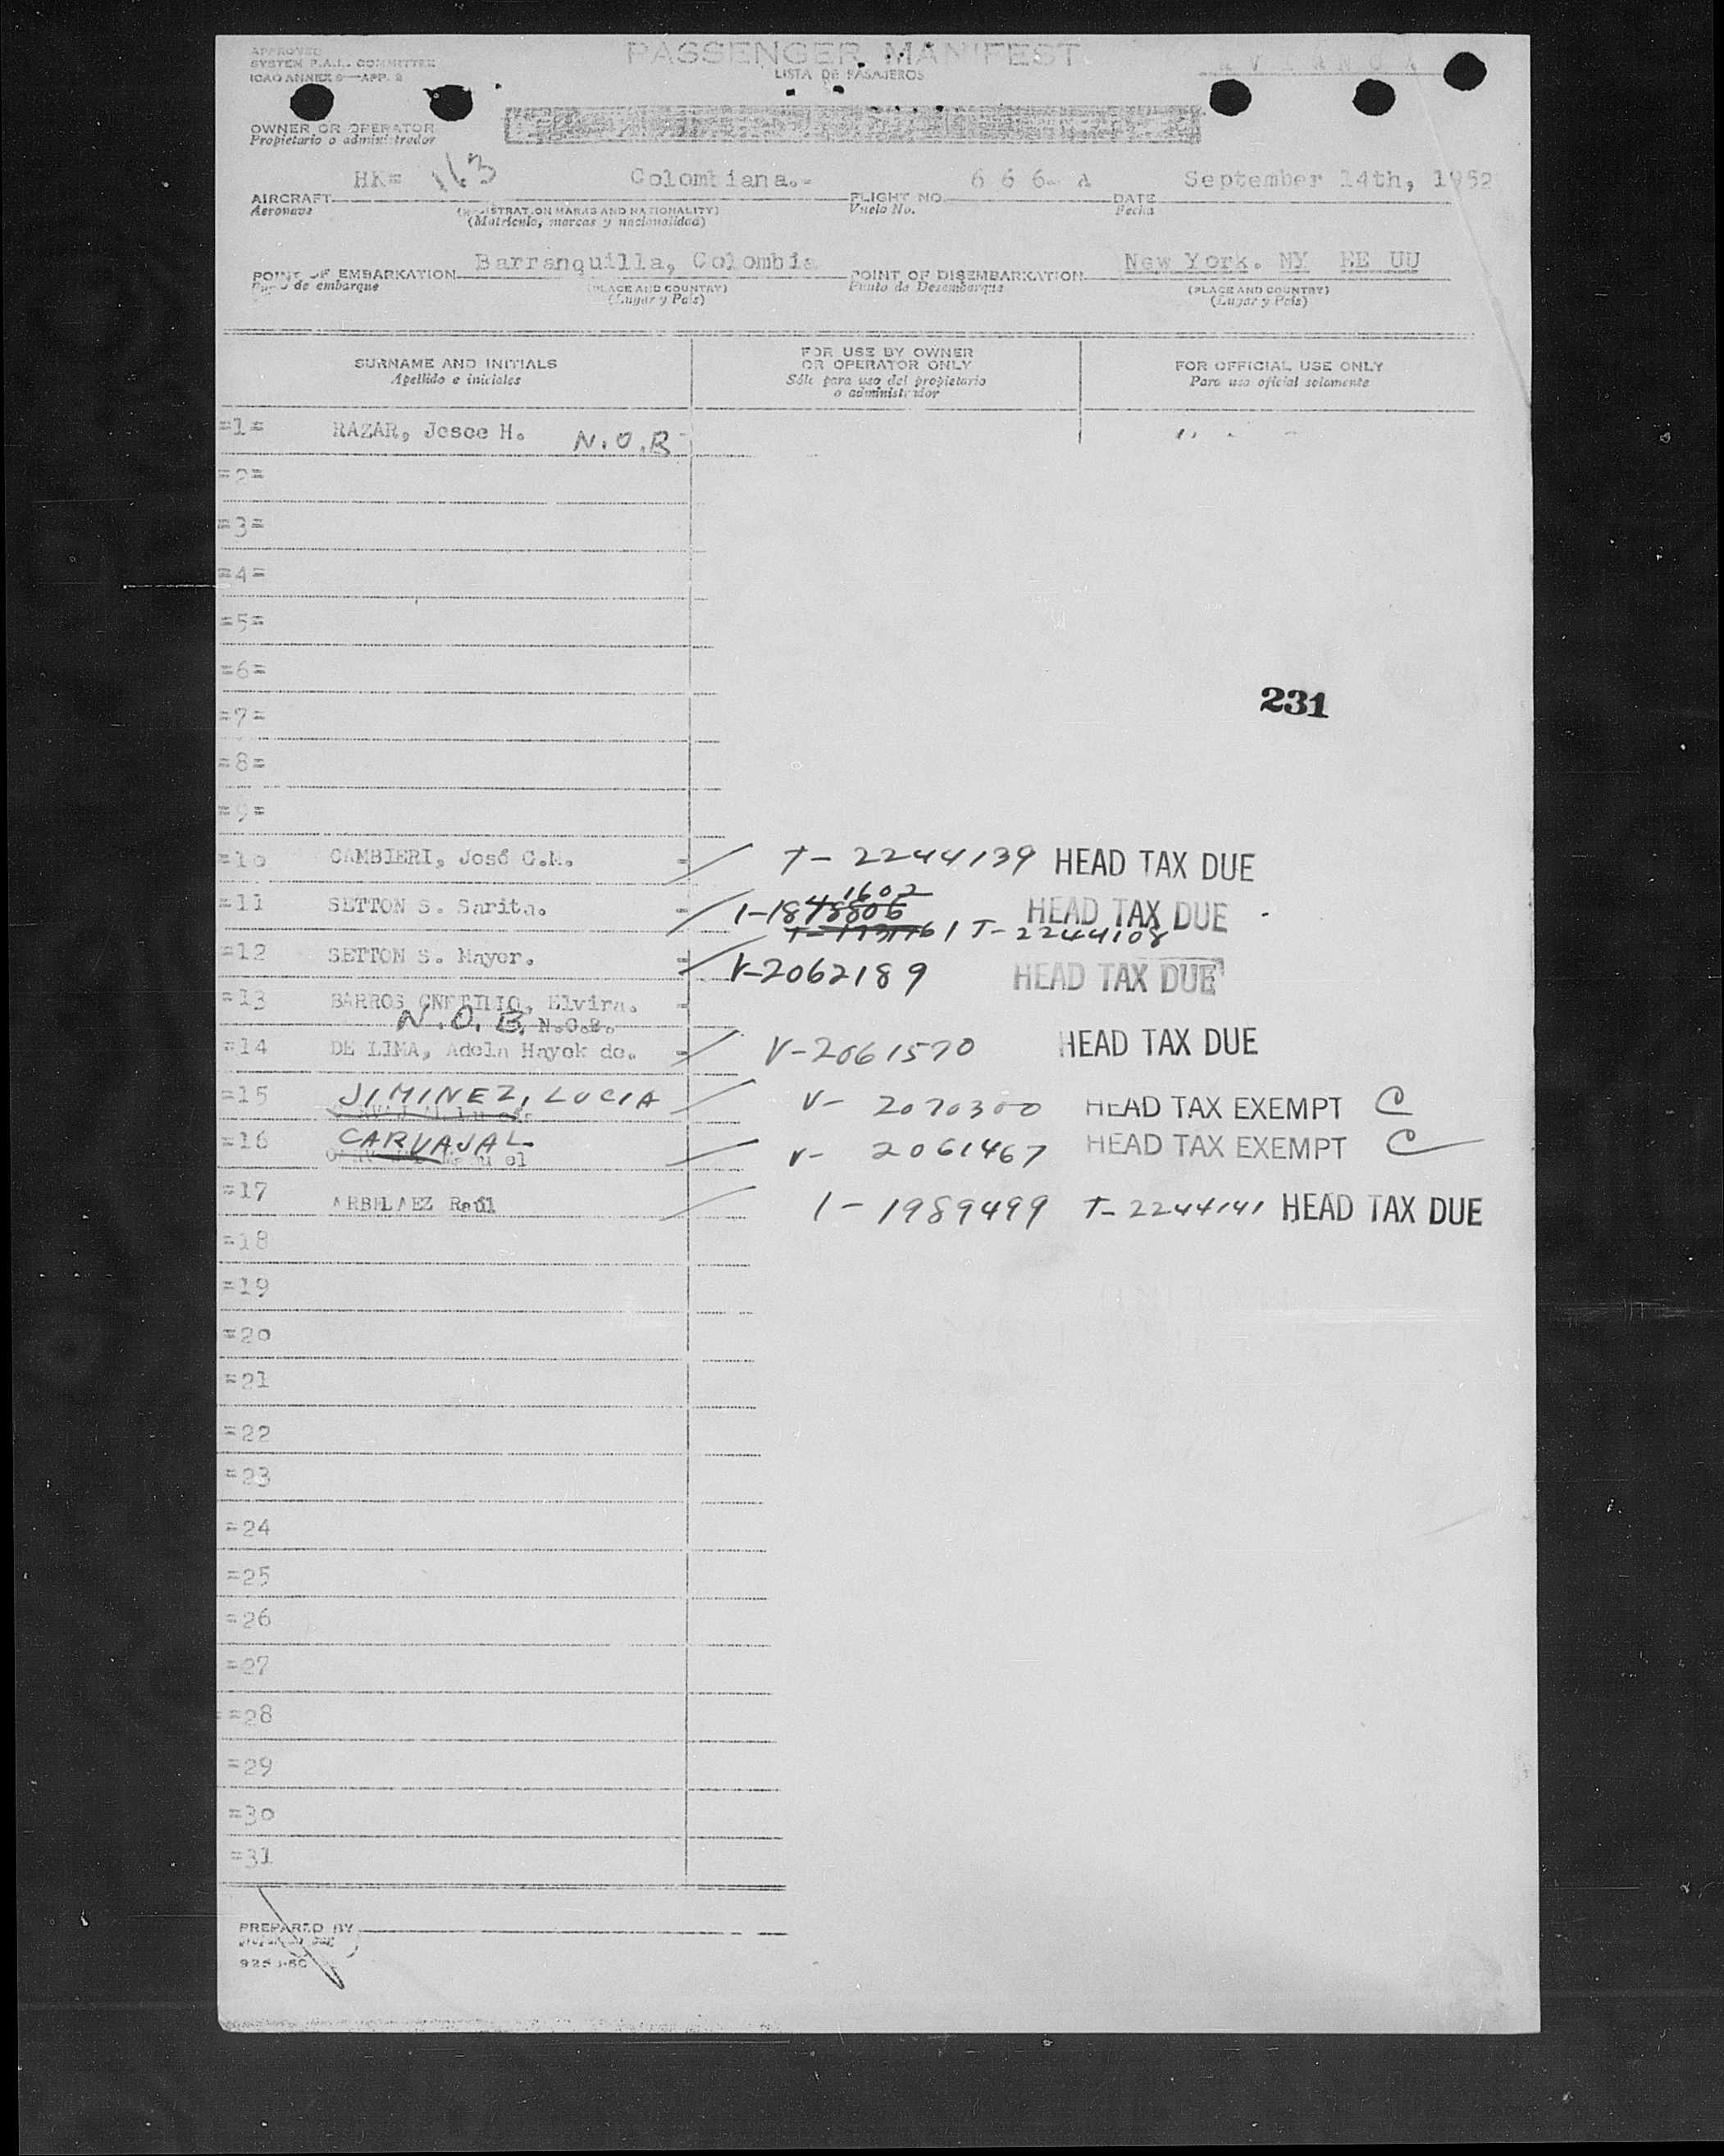 APPROVED
SYSTEM F.A.L. COMMITTEE
ICAO ANNEX 9—APP. 2
PASSENGER MANIFEST
LISTA DE PASAJEROS
OWNER OR OPERATOR
Propietario o administrador
HK= 163 Colombiana.- 6 6 6- A September 14th, 1952
AIRCRAFT FLIGHT NO. DATE
Aeronave (REGISTRATION MARKS AND NATIONALITY) Vuelo No. Fecha
(Matrícula, marcas y nacionalidad)
Barranquilla, Colombia New York. NY EE UU
POINT OF EMBARKATION POINT OF DISEMBARKATION
Punto de embarque (PLACE AND COUNTRY) Punto de Desembarque (PLACE AND COUNTRY)
(Lugar y País) (Lugar y País)
SURNAME AND INITIALS FOR USE BY OWNER OR OPERATOR ONLY FOR OFFICIAL USE ONLY
Apellido e iniciales Sólo para uso del propietario o administrador Para uso oficial solamente
=1= RAZAR, Jesoe H. N.O.B
=2=
=3=
=4=
=5=
=6=
231
=7=
=8=
=9=
=10 CAMBIERI, José C.M. T- 2244139 HEAD TAX DUE
1602
=11 SETTON S. Sarita. 1-1848806 HEAD TAX DUE
T- 2244108
=12 SETTON S. Mayer. V-2062189 HEAD TAX DUE
=13 BARROS Elvira.
N.O.B. N.O.B.
=14 DE LIMA, Adela Hayek de. V-2061570 HEAD TAX DUE
=15 JIMINEZ, LUCIA V- 2070300 HEAD TAX EXEMPT C
=16 CARVAJAL V- 2061467 HEAD TAX EXEMPT C
=17 ARBELAEZ Raúl 1- 1989499 T- 2244141 HEAD TAX DUE
=18
=19
=20
=21
=22
=23
=24
=25
=26
=27
=28
=29
=30
=31
PREPARED BY